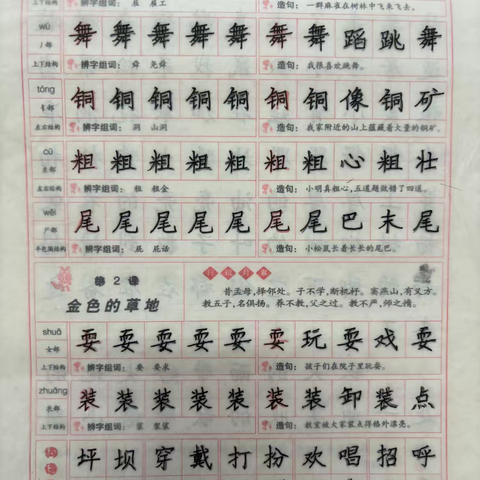 辨字组词：屋 雇工 造句：一群麻雀在树林中飞来飞去。
wǔ
舞 舞 舞 舞 舞 舞 舞 蹈 跳 舞
丿部
上下结构 辨字组词：舜 尧舜 造句：我很喜欢跳舞。
tóng
铜 铜 铜 铜 铜 铜 铜 像 铜 矿
钅部
左右结构 辨字组词：洞 山洞 造句：我家附近的山上蕴藏着大量的铜矿。
cū
粗 粗 粗 粗 粗 粗 粗 心 粗 壮
米部
左右结构 辨字组词：租 租金 造句：小明真粗心,五道题做错了四道。
wěi
尾 尾 尾 尾 尾 尾 尾 巴 末 尾
尸部
半包围结构 辨字组词：屁 屁话 造句：小松鼠长着长长的尾巴。
第 2 课
金色的草地
昔孟母,择邻处。子不学,断机杼。窦燕山,有义方。
教五子,名俱扬。养不教,父之过。教不严,师之惰。
shuǎ
耍 耍 耍 耍 耍 耍 玩 耍 戏 耍
女部
上下结构 辨字组词：要 要求 造句：孩子们在院子里玩耍。
zhuāng
装 装 装 装 装 装 装 卸 装 点
衣部
上下结构 辨字组词：袋 造句：教室被大家装点得格外漂亮。
坪 坝 穿 戴 打 扮 欢 唱 招 呼